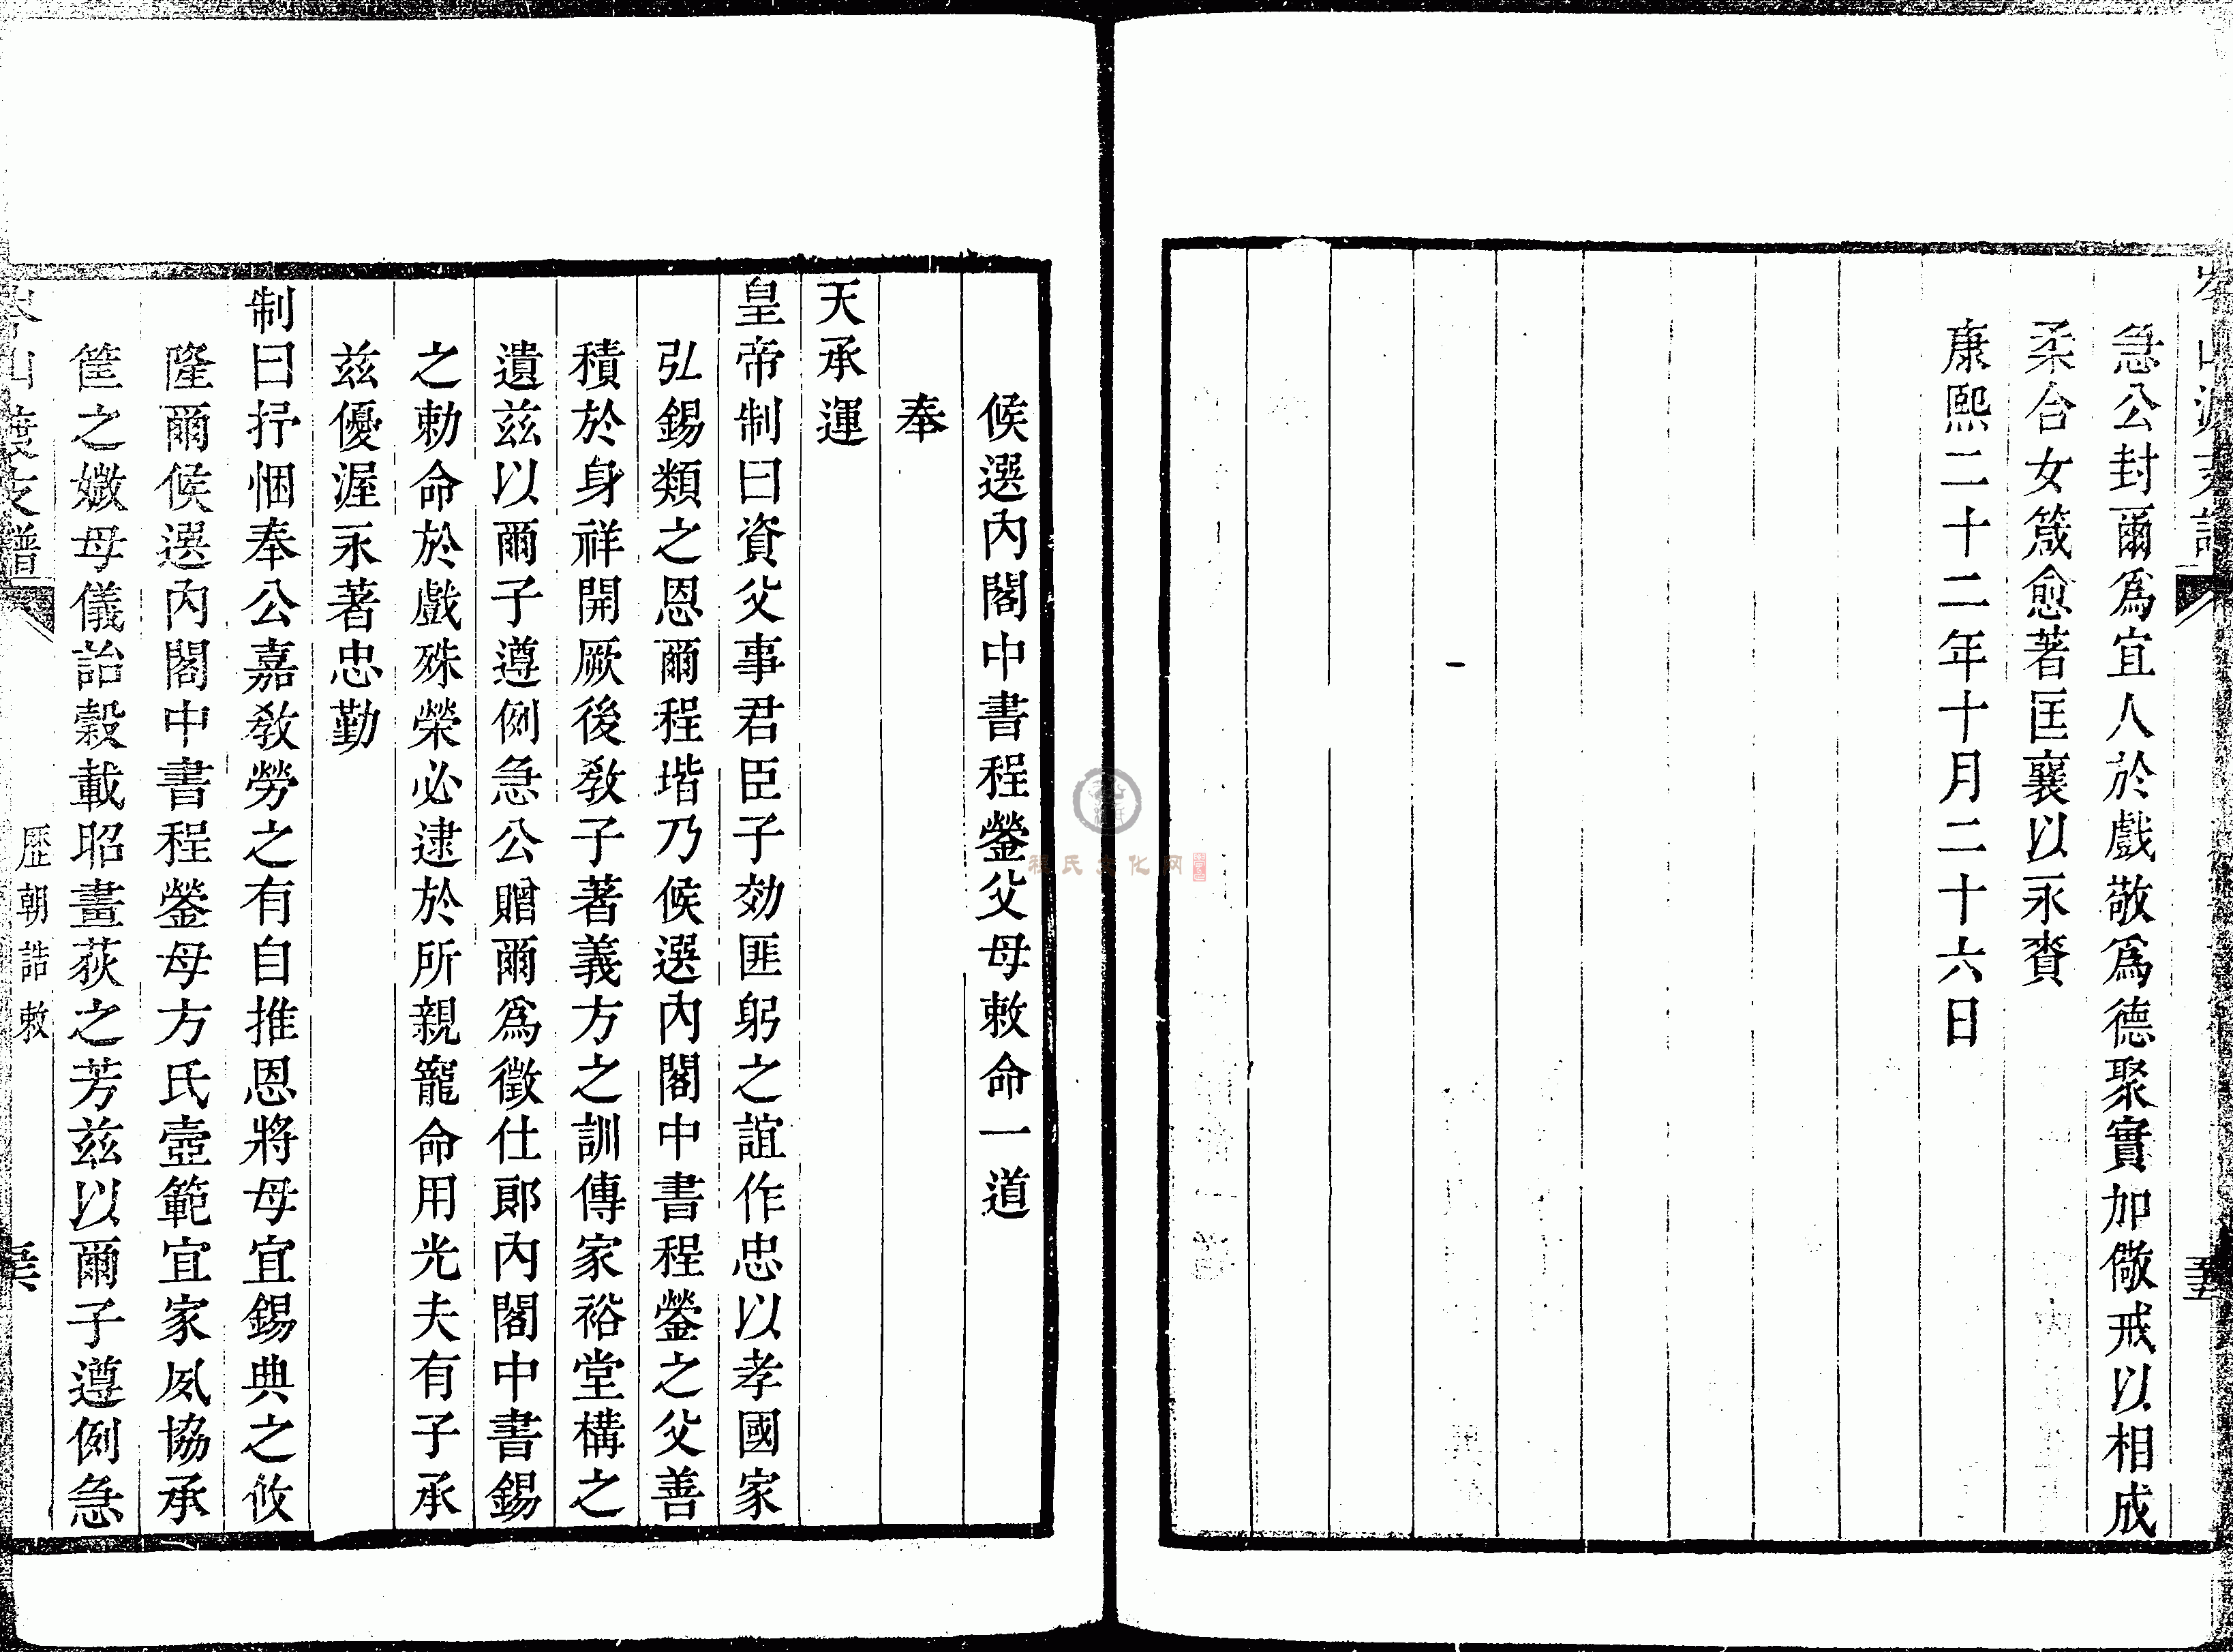 急公封爾爲宜人於戲敬爲德聚實加儆戒以相成
柔合女箴愈著匡襄以永賚
康熙二十二年十月二十六日
候選內閣中書程鎣父母敕命一道
奉
天承運
皇帝制曰資父事君臣子効匪躬之誼作忠以孝國家
弘錫類之恩爾程堦乃候選內閣中書程鎣之父善
積於身祥開厥後教子著義方之訓傳家裕堂構之
遺茲以爾子遵例急公贈爾爲徵仕郎內閣中書錫
之勅命於戲殊榮必逮於所親寵命用光夫有子承
茲優渥永著忠勤
制曰抒悃奉公嘉教勞之有自推恩將母宜錫典之攸
隆爾候選內閣中書程鎣母方氏壼範宜家夙協承
筐之媺母儀詒穀載昭畫荻之芳茲以爾子遵例急
歷朝誥敕
程氏文化网